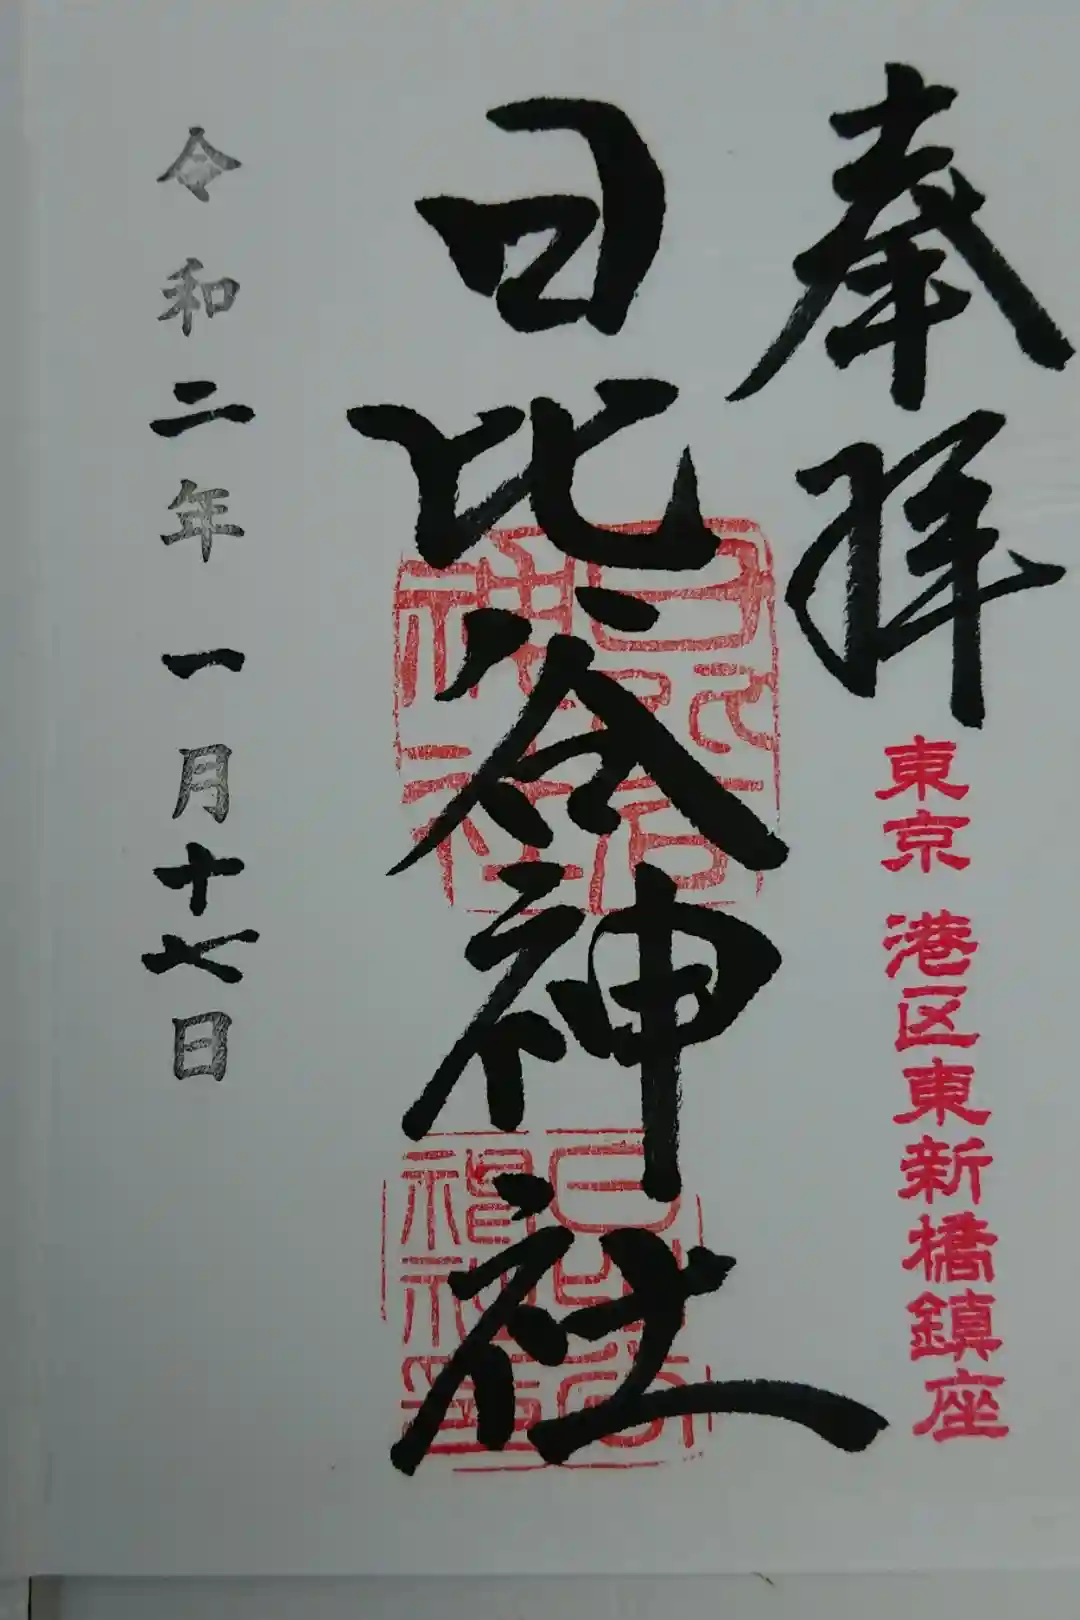 奉拝
東京 港区東新橋鎮座
日比谷神社
日比谷神社
令和二年 一月十七日